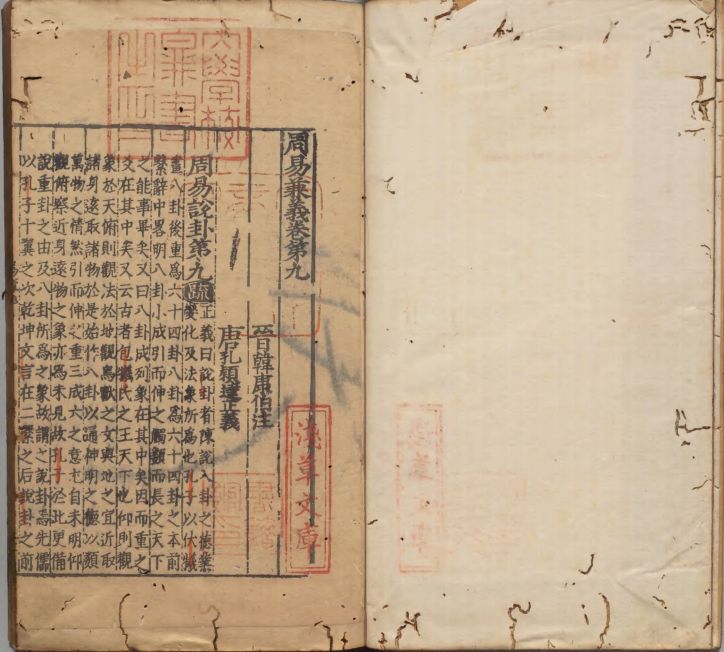 周易兼義卷第九
晉韓康伯注
唐孔穎達正義
周易說卦第九 疏 正義曰說卦者陳說八卦之德業
變化及法象所爲也孔子以伏犧
畫八卦後重爲六十四卦八卦爲六十四卦之本前
繫辭中畧明八卦小成引而伸之觸類而長之天下
之能事畢矣又曰八卦成列象在其中矣因而重之
爻在其中矣又云古者包犧氏之王天下也仰則觀
象於天俯則觀法於地觀鳥獸之文與地之宜近取
諸身遠取諸物於是始作八卦以通神明之德以類
萬物之情然引而伸之重三成六之意尤自未明仰
觀俯察近身遠物之象亦爲未見故孔子於此更備
說重卦之由及八卦所爲之象故謂之說卦焉先儒
以孔子十翼之次乾坤文言在二繫之后說卦之前
大學校圖書之印
浅草文庫